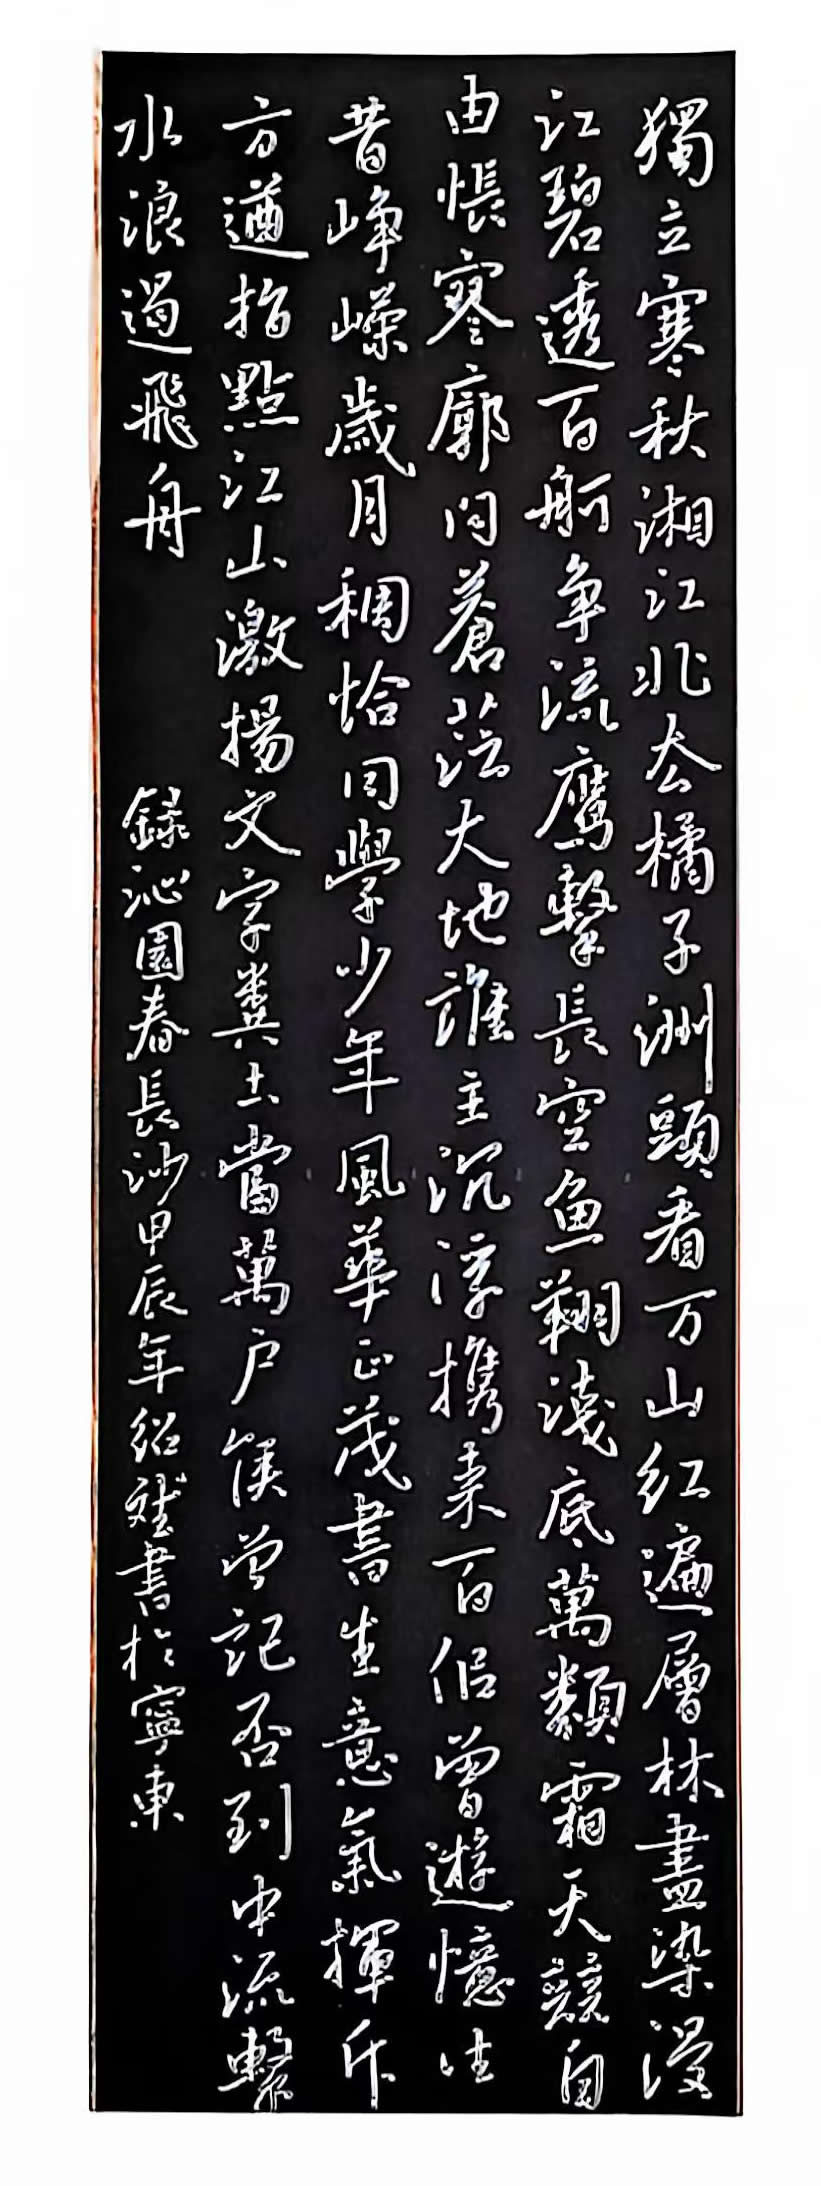 獨立寒秋湘江北去橘子洲頭看万山红遍層林盡染漫
江碧透百舸争流鹰擊長空鱼翔淺底萬類霜天競自
由悵寥廓问蒼茫大地誰主沉浮携来百侣曾遊憶往
昔峥嶸歲月稠恰同學少年風華正茂書生意氣揮斥
方遒指點江山激揚文字糞土當萬户侯曾記否到中流擊
水浪遏飛舟
録沁園春長沙甲辰年紹斌書於寧東